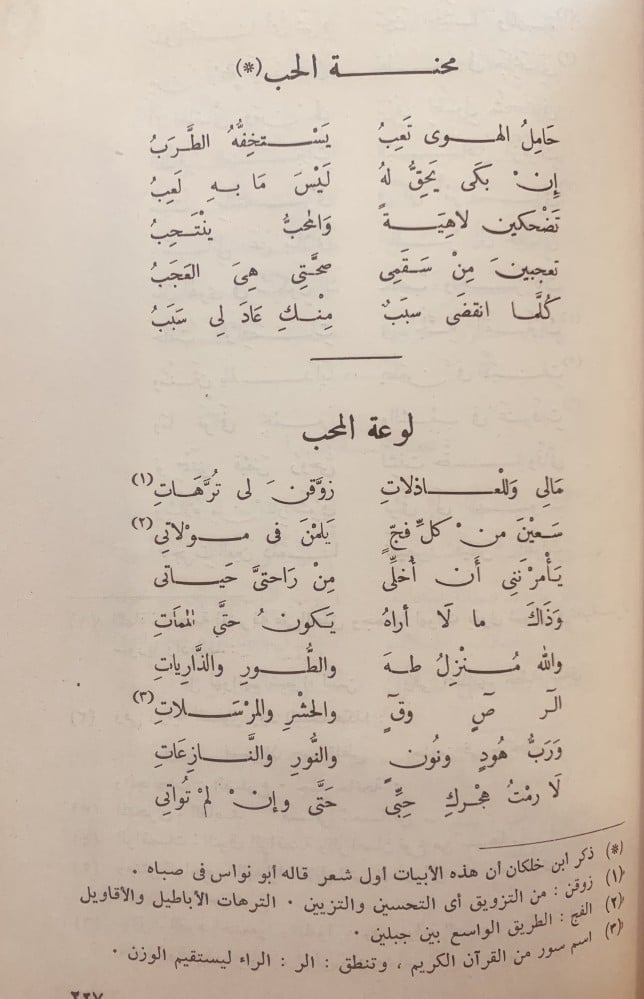 محنـــة الحب (*)
حَامِلُ الهوى تَعِبُ يَسْتخِفُّهُ الطَّرَبُ
إِنْ بكَى يَحِقُّ لهُ لَيْسَ مَا بهِ لَعِبُ
تَضْحكين لاهِيَةً وَالمحبُّ ينْتَحِبُ
تعجبينَ مِنْ سَقَمِى صحَّتِي هِىَ العَجَبُ
كُلَّما انقضَى سببٌ مِنْكِ عَادَ لِى سَبَبُ
لوعة المحب
مَالِى وَللْعاذلاتِ زوَّقنَ لى تُرَّهَاتِ (١)
سَعَيْنَ منْ كلِّ فجٍّ يَلمْنَ فى موْلاتِي (٢)
يَأْمرْنَنِي أن أُخلِّى مِنْ رَاحتىَّ حَياتى
وَذَاكَ ما لَا أراهُ يَكونُ حتَّى المَمَاتِ
والله مُنْزِلُ طهَ والطُّورِ والذَّارِياتِ
الٓر صٍ وقٓ والحشْرِ والمرْسَلاتِ (٣)
وَرَبُّ هُودٍ ونُونٍ والنُّورِ والنَّازِعَاتِ
لَا رمْتُ هِجْركِ حِبِّى حَتَّى وإنْ لمْ تُواتِي
(*) ذكر ابن خلكان أن هذه الأبيات أول شعر قاله أبو نواس فى صباه .
(١) زوقن : من التزويق أى التحسين والتزيين . الترهات الأباطيل والأقاويل
(٢) الفج : الطريق الواسع بين جبلين .
(٣) اسم سور من القرآن الكريم ، وتنطق : الر : الراء ليستقيم الوزن .
٢٢٧